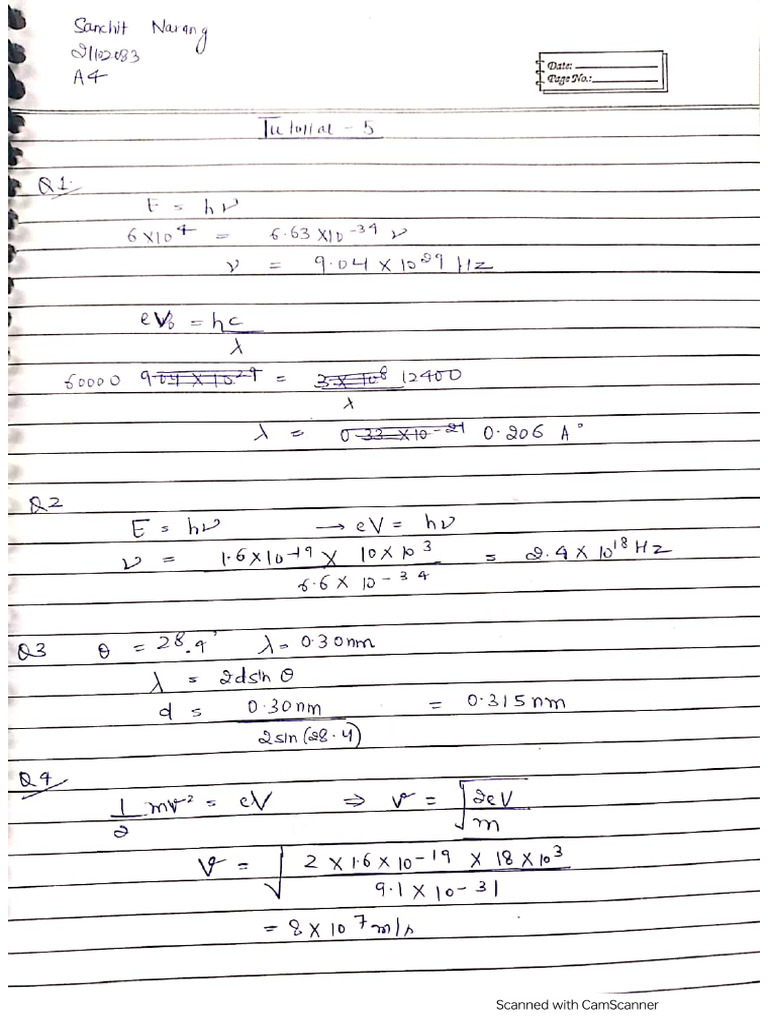 Sanchit Narang
21102083
A4
Date:
Page No.:
Tutorial - 5
Q1.
E = hν
6×10⁴ = 6.63 ×10⁻³⁴ ν
ν = 9.04 × 10²⁹ Hz
eV₀ = hc/λ
60000 9.04 × 10²⁹ = 3 × 10⁸ 12400/λ
λ = 0.33 ×10⁻²¹ 0.206 A°
Q2
E = hν → eV = hν
ν = 1.6×10⁻¹⁹ × 10×10³/6.6 × 10⁻³⁴ = 2.4 × 10¹⁸ Hz
Q3 θ = 28.4° λ = 0.30nm
λ = 2dsinθ
d = 0.30nm/2sin(28.4) = 0.315 nm
Q4
1/2 mv² = eV ⇒ v = √2eV/m
v = √2 × 1.6 × 10⁻¹⁹ × 18 × 10³/9.1 × 10⁻³¹
= 8 × 10⁷ m/s
Scanned with CamScanner